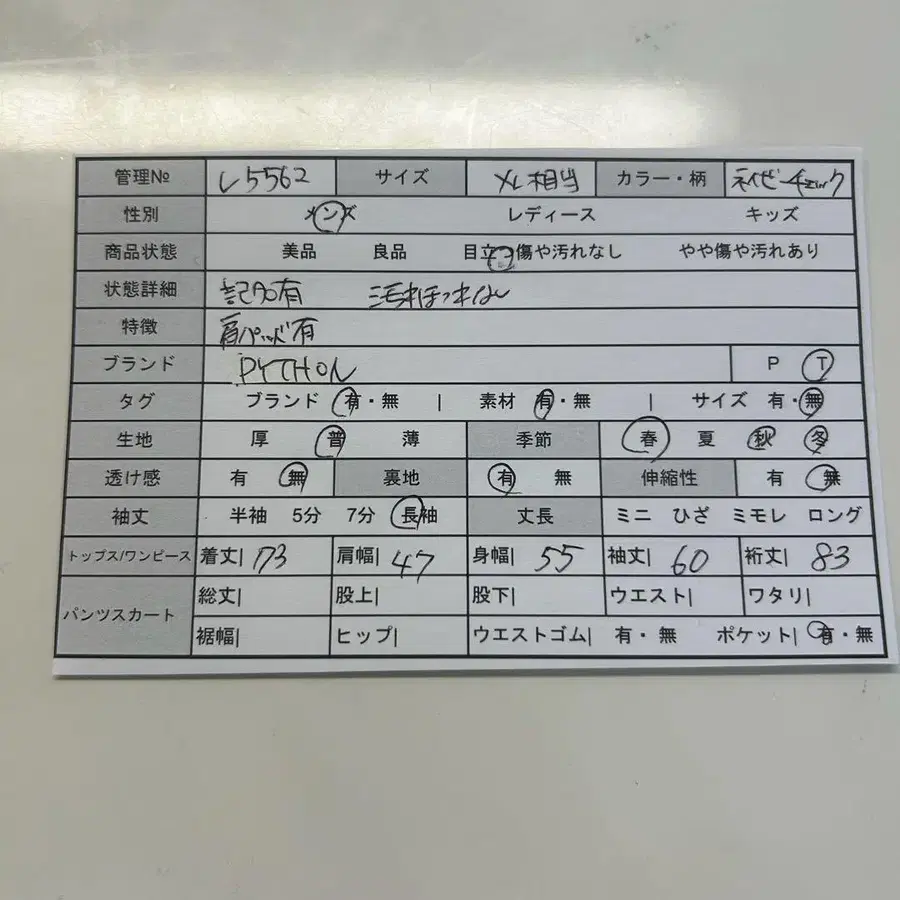 管理№ L5562 サイズ XL相当 カラー・柄 ネイビーチェック
性別 メンズ レディース キッズ
商品状態 美品 良品 目立つ傷や汚れなし やや傷や汚れあり
状態詳細 記名有 汚れほつれなし
特徴 肩パッド有
ブランド PYTHON P T
タグ ブランド 有・無 | 素材 有・無 | サイズ 有・無
生地 厚 普 薄 季節 春 夏 秋 冬
透け感 有 無 裏地 有 無 伸縮性 有 無
袖丈 半袖 5分 7分 長袖 丈長 ミニ ひざ ミモレ ロング
トップス/ワンピース 着丈| 73 肩幅| 47 身幅| 55 袖丈| 60 裄丈| 83
パンツスカート 総丈| 股上| 股下| ウエスト| ワタリ|
裾幅| ヒップ| ウエストゴム| 有・無 ポケット| 有・無